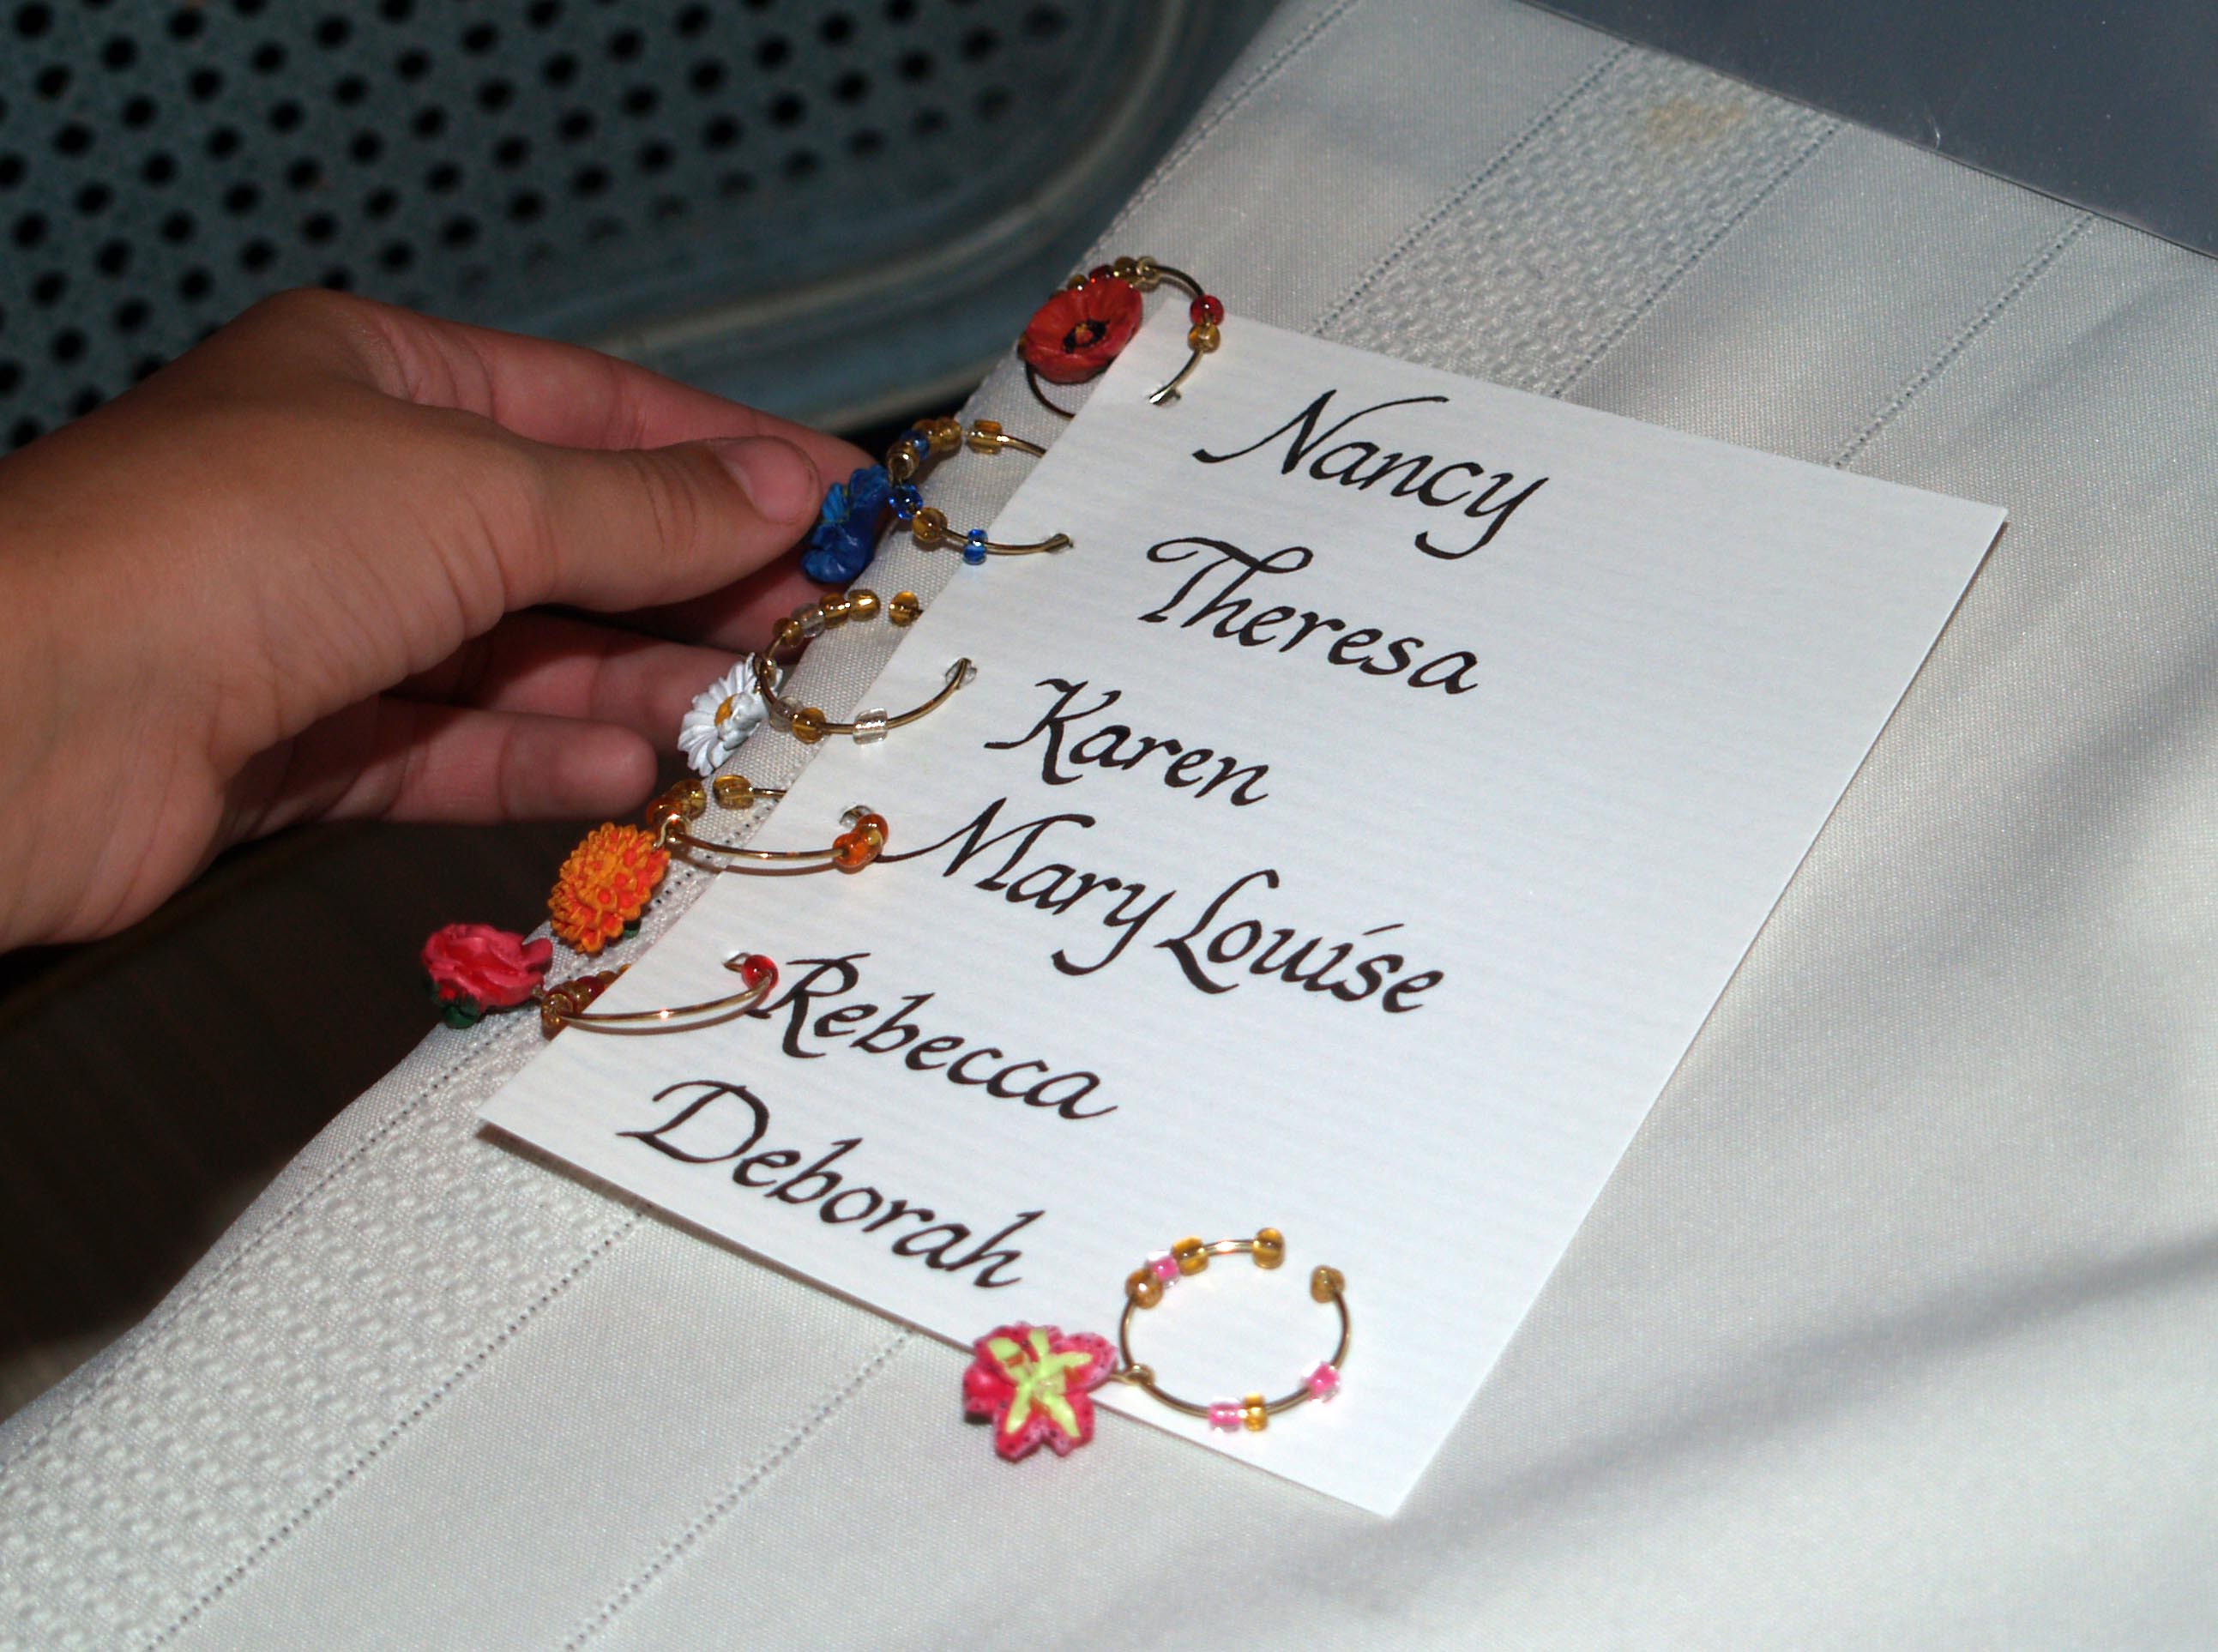 Nancy
Theresa
Karen
Mary Louise
Rebecca
Deborah